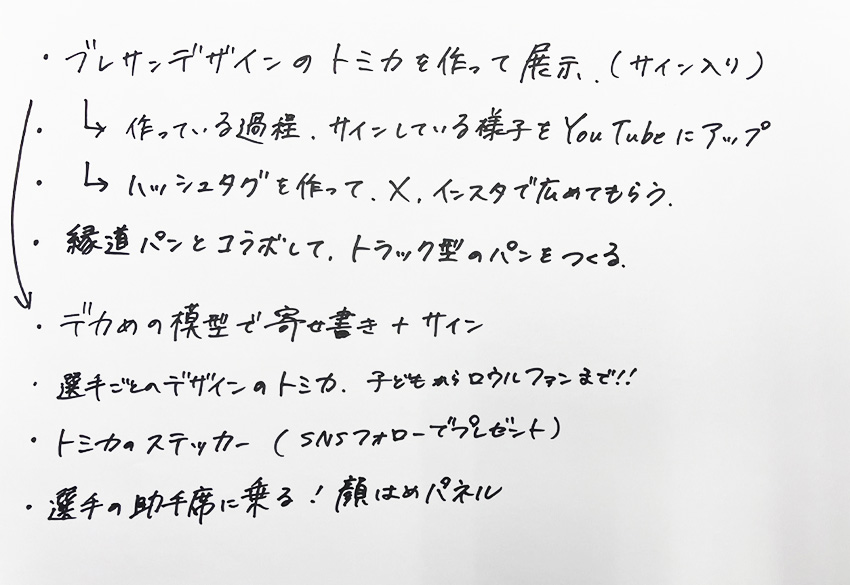 ・ブレサンデザインのトミカを作って展示、(サイン入り)
・ ↳ 作っている過程、サインしている様子をYouTubeにアップ
・ ↳ ハッシュタグを作って、X、インスタで広めてもらう。
・縁道パンとコラボして、トラック型のパンをつくる。
・デカめの模型で寄せ書き+サイン
・選手ごとのデザインのトミカ、子どもからロウルファンまで!!
・トミカのステッカー(SNSフォローでプレゼント)
・選手の助手席に乗る!顔はめパネル